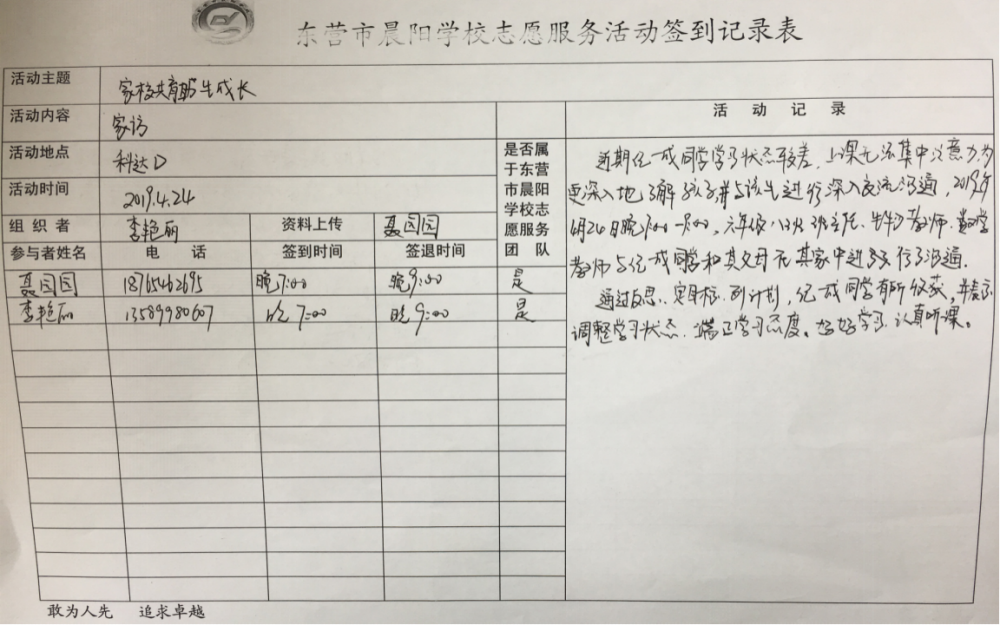 东营市晨阳学校志愿服务活动签到记录表
活动主题 家校共育助生成长
活动内容 家访
活动地点 科达D
活动时间 2019.4.24
组织者 李艳丽 资料上传 聂园园
参与者姓名 电话 签到时间 签退时间
是否属
于东营
市晨阳
学校志
愿服务
团队
聂园园 18765462695 晚7:00 晚9:00 是
李艳丽 13589980607 晚7:00 晚9:00 是
活动记录
近期纪成同学学习状态较差,上课无法集中注意力,为
更深入地了解孩子,并与该生进行深入交流沟通,2019年
4月24日晚7:00—9:00,六年级八班班主任、教师、数学
教师与纪成同学和其父母在其家中进行了沟通。
通过反思、定目标、列计划,纪成同学有所收获,并表示
调整学习状态、端正学习态度。好好学习、认真听课。
敢为人先 追求卓越